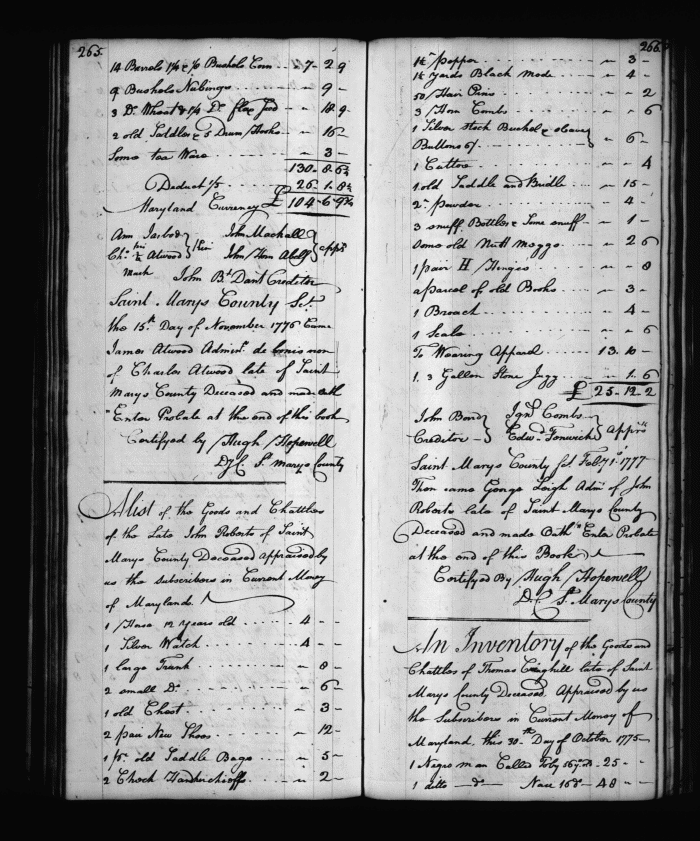 265.
14 Barrels 1 1/2 & 1/2 Bushels Corn - 7 - 2 9
9 Bushels Nubings - - 9 -
3 Do. Wheat & 1/4 Do. flax Seed - - 18 9
2 old Saddles & 3 Drum Hooks - - 16 -
Some tea Ware - - 3 -
130 - 8 - 6
Deduct 1/5 26 - 1 - 8
Maryland Currency £ 104 - 6 - 9
Ann Jarboe } John Mackall }
Chs. his Atwood } Kin John Horn Abell } apprs
mark John Bt. Dant Creditor
Saint Marys County Sct.
the 15th. Day of November 1776 Came
James Atwood Adminr. de bonis non
of Charles Atwood late of Saint
Marys County Deceased and made oath
"Enter Probate at the end of this book
Certifyed by Hugh Hopewell
DyC. St. Marys County
A list of the Goods and Chattles
of the Late John Roberts of Saint
Marys County Deceased Appraised by
us the Subscribers in Current Money
of Maryland.
1 Horse 12 years old - 4 - -
1 Silver Watch - 4 - -
1 large Trunk - - 8 -
2 small Do. - - 6 -
1 old Chest - - 3 -
2 pair New Shoes - - 12 -
1 pr. old Saddle Bags - - 5 -
2 Check Handkerchieffs - - 2 -
266.
pepper - - 3 -
yards Black mode - - 4 -
50 Hair Pins - - - 2
3 Horn Combs - - - 6
1 Silver Stock Buckel & sleave }
Buttons 6/ } - 6 -
1 Cuttoe - - - 4
1 old Saddle and Bridle - - 15 -
powder - - 4 -
3 snuff Bottles & Some snuff - - 1 -
Some old Nutt Meggs - - 2 6
1 pair H Hinges - - - 8
a parcel of old Books - - 3 -
1 Broach - - 4 -
1 Scale - - - 6
To Wearing Apparel 13. 10 -
1. 3 Gallon Stone Jugg - - 1. 6
£ 25 - 12 - 2
John Bond } Igns. Combs }
Creditor } Edwd. Fenwick } Apprs
Saint Marys County Sct. Feby. 1777
Then came George Leigh Admr. of John
Roberts late of Saint Marys County
Deceased and made Oath "Enter Probate
at the end of this Book
Certifyed By Hugh Hopewell
D.C. St. Marys County
An Inventory of the Goods and
Chattles of Thomas late of Saint
Marys County Deceased, Appraised by us
the Subscribers in Current Money of
Maryland, this 30th. Day of October 1775
1 Negro man Called Toby 56 yrs. - 25 - -
1 ditto - do. - Nace 16 do. - 48 - -